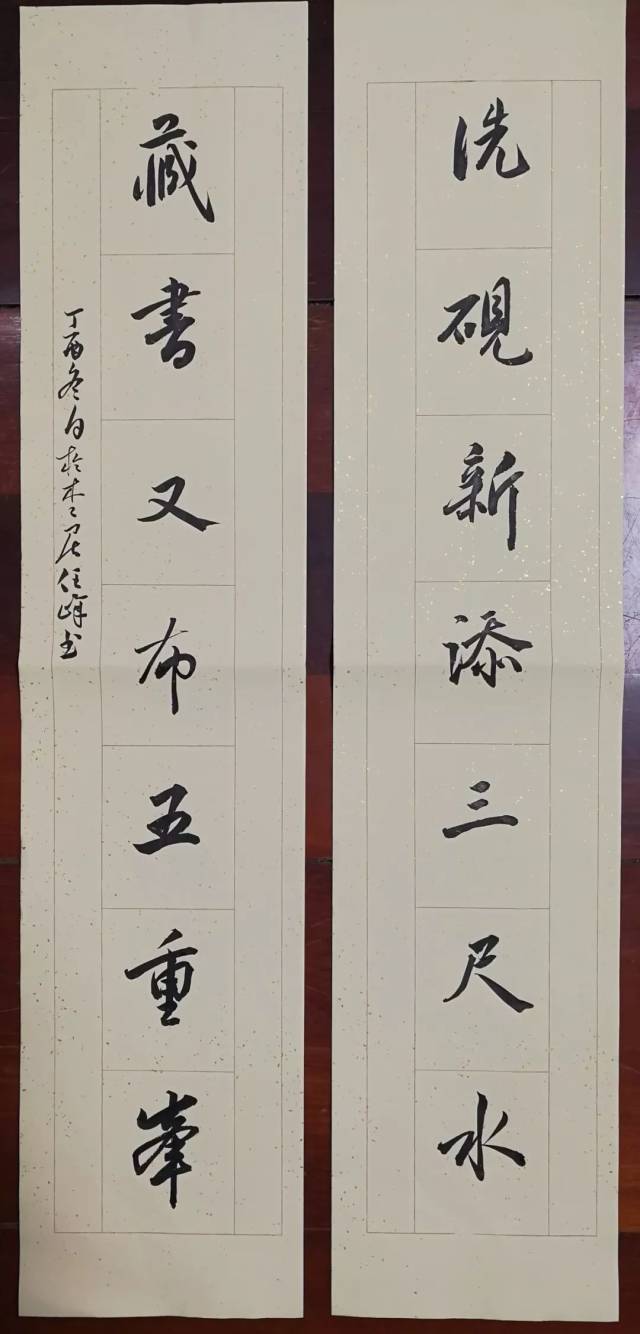 洗硯新添三尺水
藏書又布五重峯
丁酉冬日於木木居任峰书